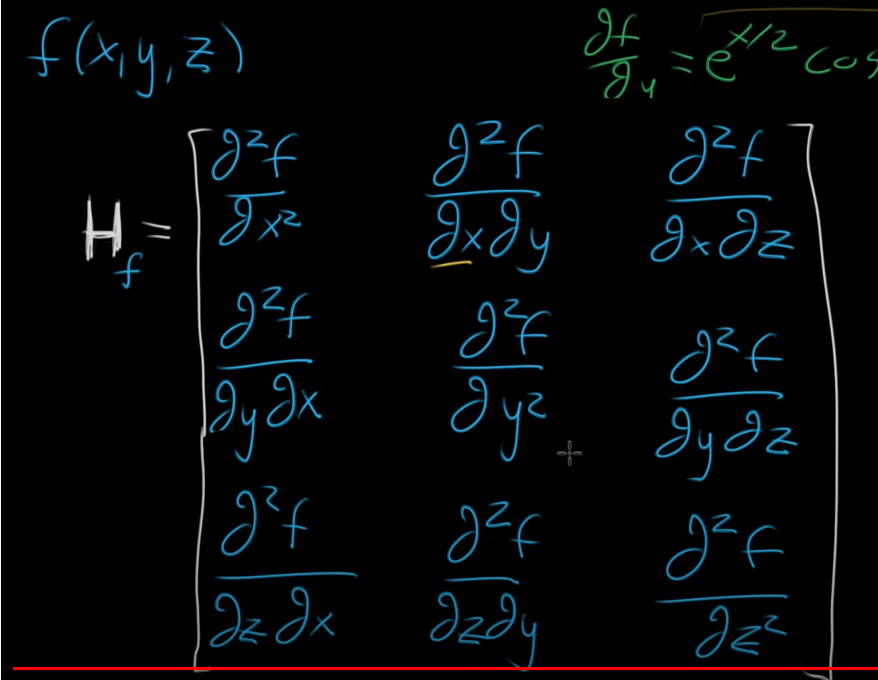 f(x,y,z)
∂f/∂y = e^(x/2) cos
H_f =
∂²f/∂x² ∂²f/∂x∂y ∂²f/∂x∂z
∂²f/∂y∂x ∂²f/∂y² ∂²f/∂y∂z
∂²f/∂z∂x ∂²f/∂z∂y ∂²f/∂z²